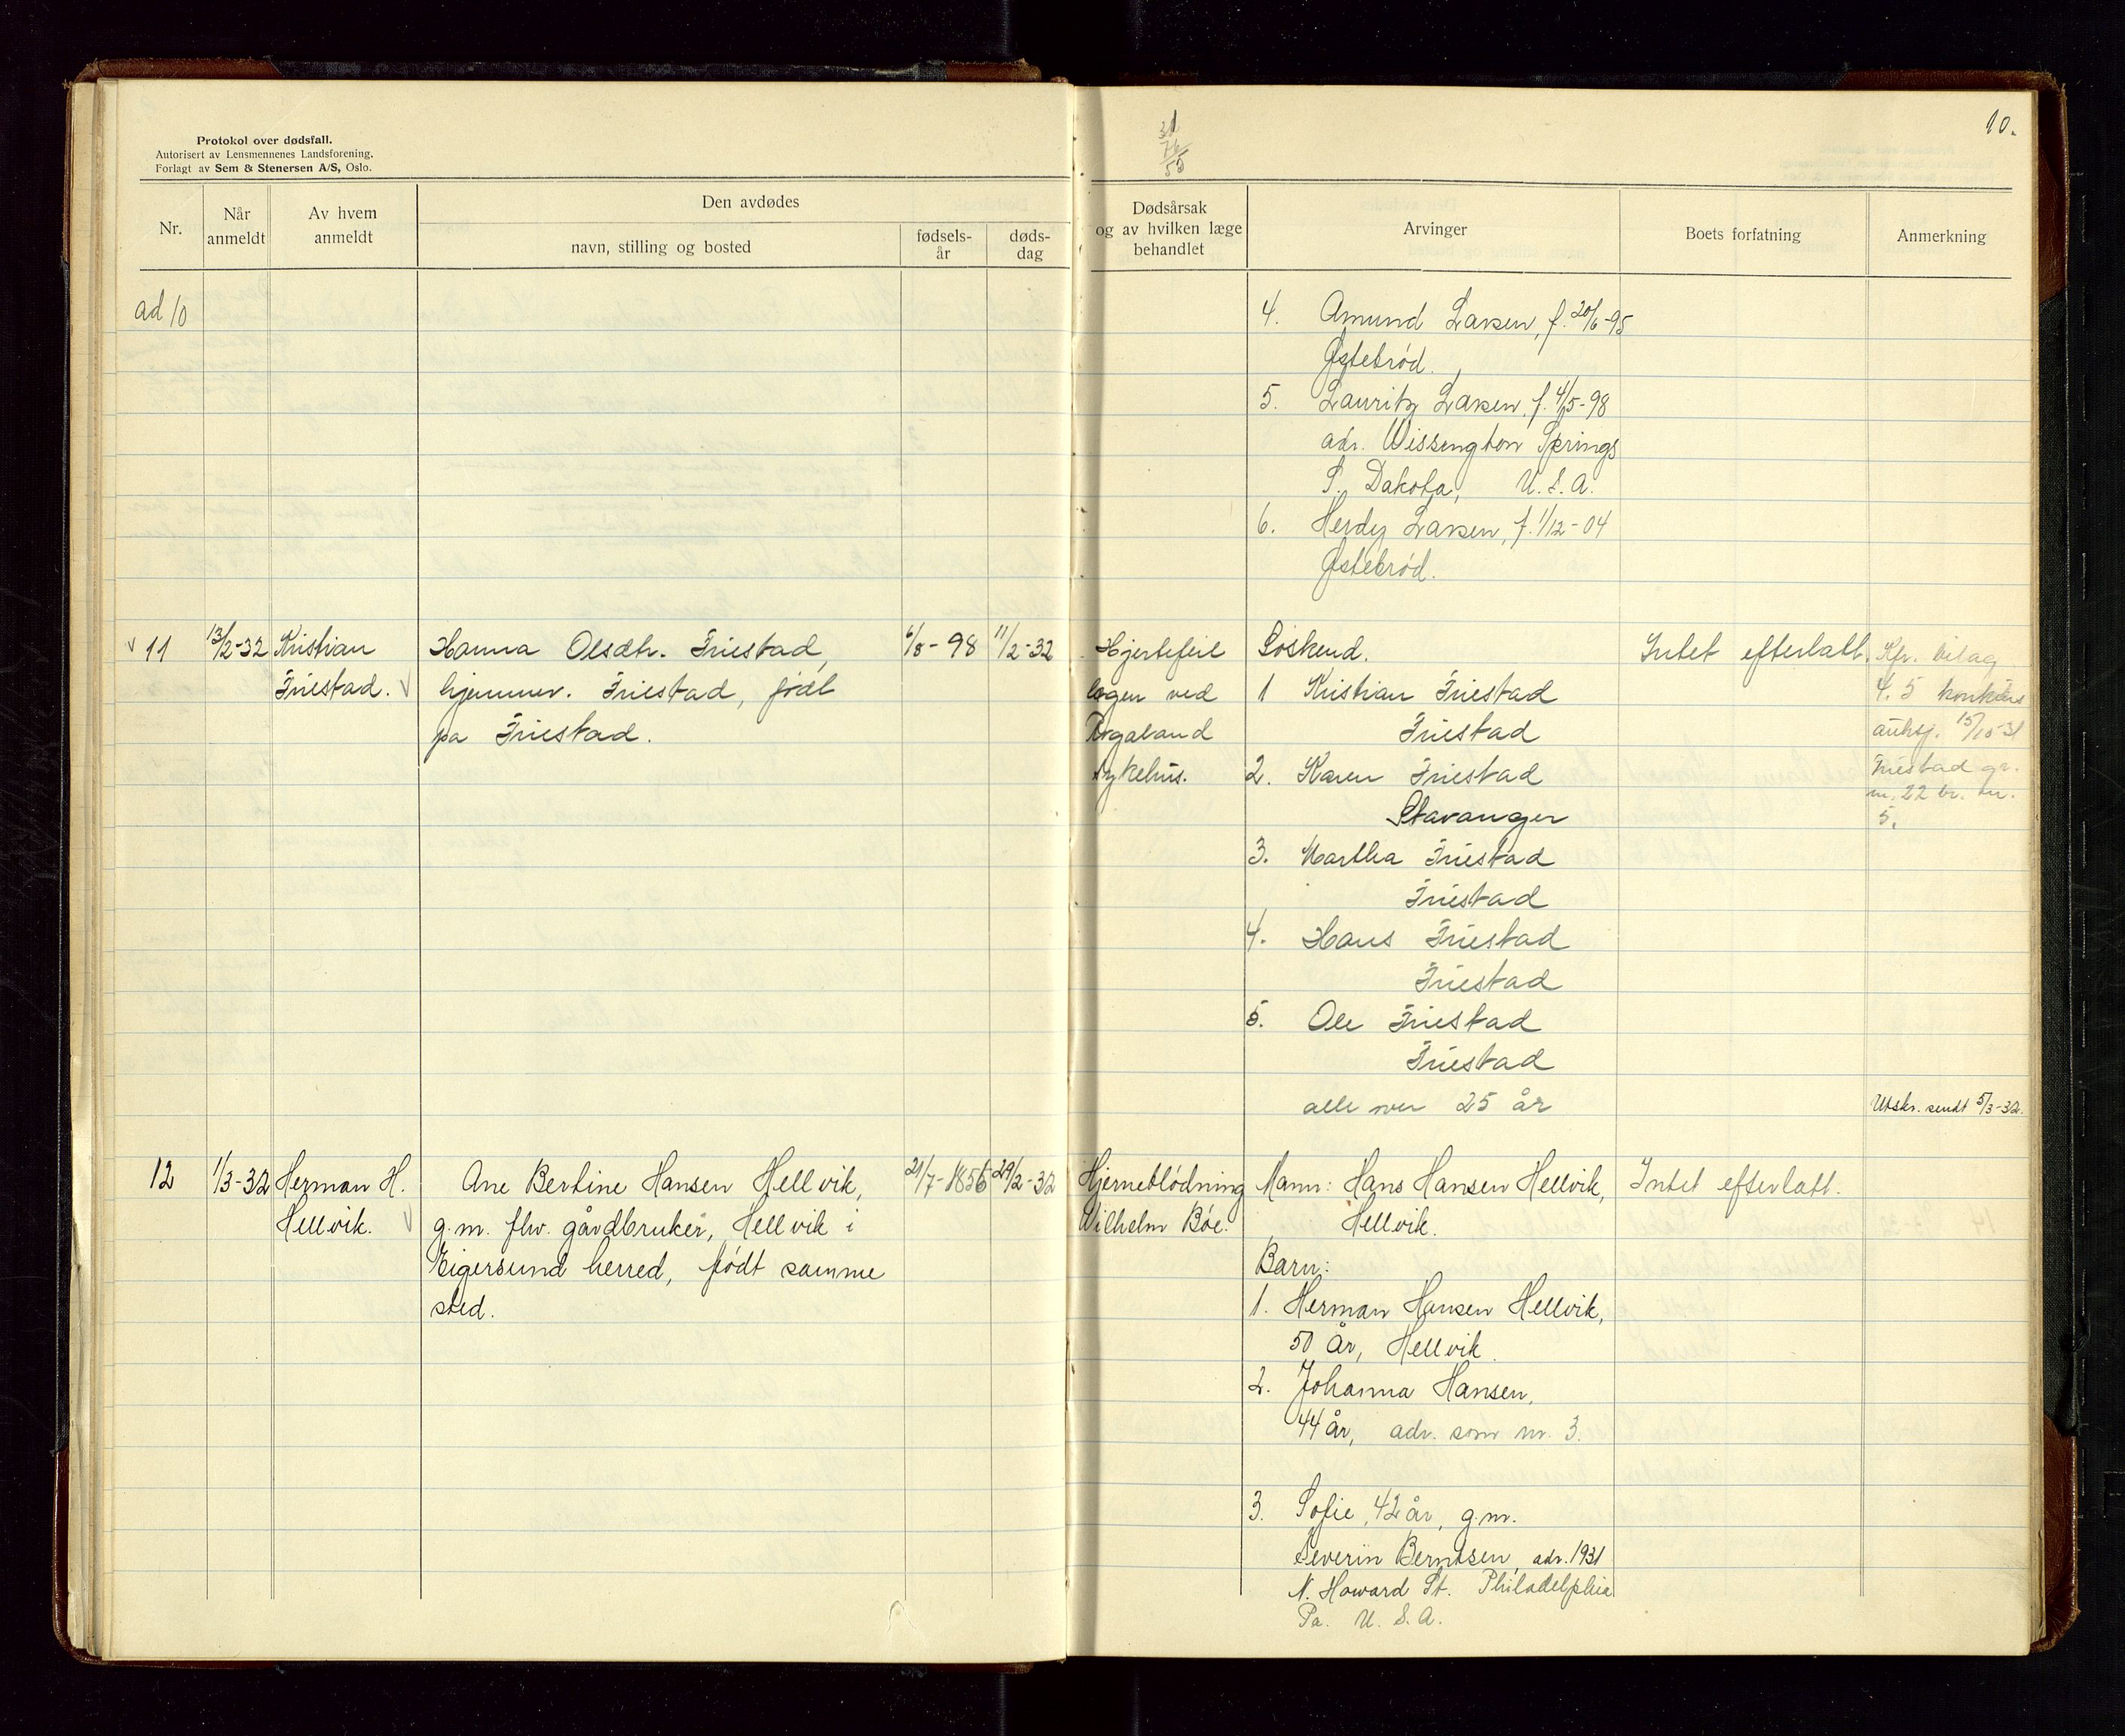 Protokol over dødsfall.
Autorisert av Lensmennenes Landsforening.
Forlagt av Sem & Stenersen A/S, Oslo.
31
76
55
10.
Nr.
Når anmeldt
Av hvem anmeldt
Den avdødes
navn, stilling og bosted
fødsels-år
døds-dag
Dødsårsak
og av hvilken læge
behandlet
Arvinger
Boets forfatning
Anmerkning
ad 10
4. Amund Larsen, f. 20/6-95
Østebrød.
5. Lauritz Larsen, f. 4/5-98
adr. Wissengton Springs
S. Dakota, U.S.A.
6. Herdy Larsen, f. 1/12-04
Østebrød.
11
13/2-32
Kristian
Friestad.
Hanna Olsdtr. Friestad,
hjemmev. Friestad, født
pa Friestad.
6/8-98
11/2-32
Hjertefeil
lægen ved
Rogaland
sykehus.
Søskend.
1 Kristian Friestad
Friestad
2. Karen Friestad
Stavanger
3. Martha Friestad
Friestad
4. Hans Friestad
Friestad
5. Ole Friestad
Friestad
alle over 25 år
Intet efterlatt.
Kfr. bilag
4. 5 konkurs
auksj. 15/10-31
Friestad gr.
nr. 22 br. nr.
5.
Utskr. sendt 5/3-32.
12
1/3-32
Herman H.
Hellvik.
Ane Bertine Hansen Hellvik,
g.m. fhv. gårdbruker, Hellvik i
Eigersund herred, født samme
sted.
21/7-1856
29/2-32
Hjerneblødning
Wilhelm Bøe.
Mann: Hans Hansen Hellvik,
Hellvik.
Barn:
1. Herman Hansen Hellvik,
50 år, Hellvik.
2. Johanna Hansen,
44 år, adr. som nr. 3.
3. Sofie, 42 år, g.m.
Severin Berntsen, adr. 1931
N. Howard St. Philadelphia
Pa. U.S.A.
Intet efterlatt.